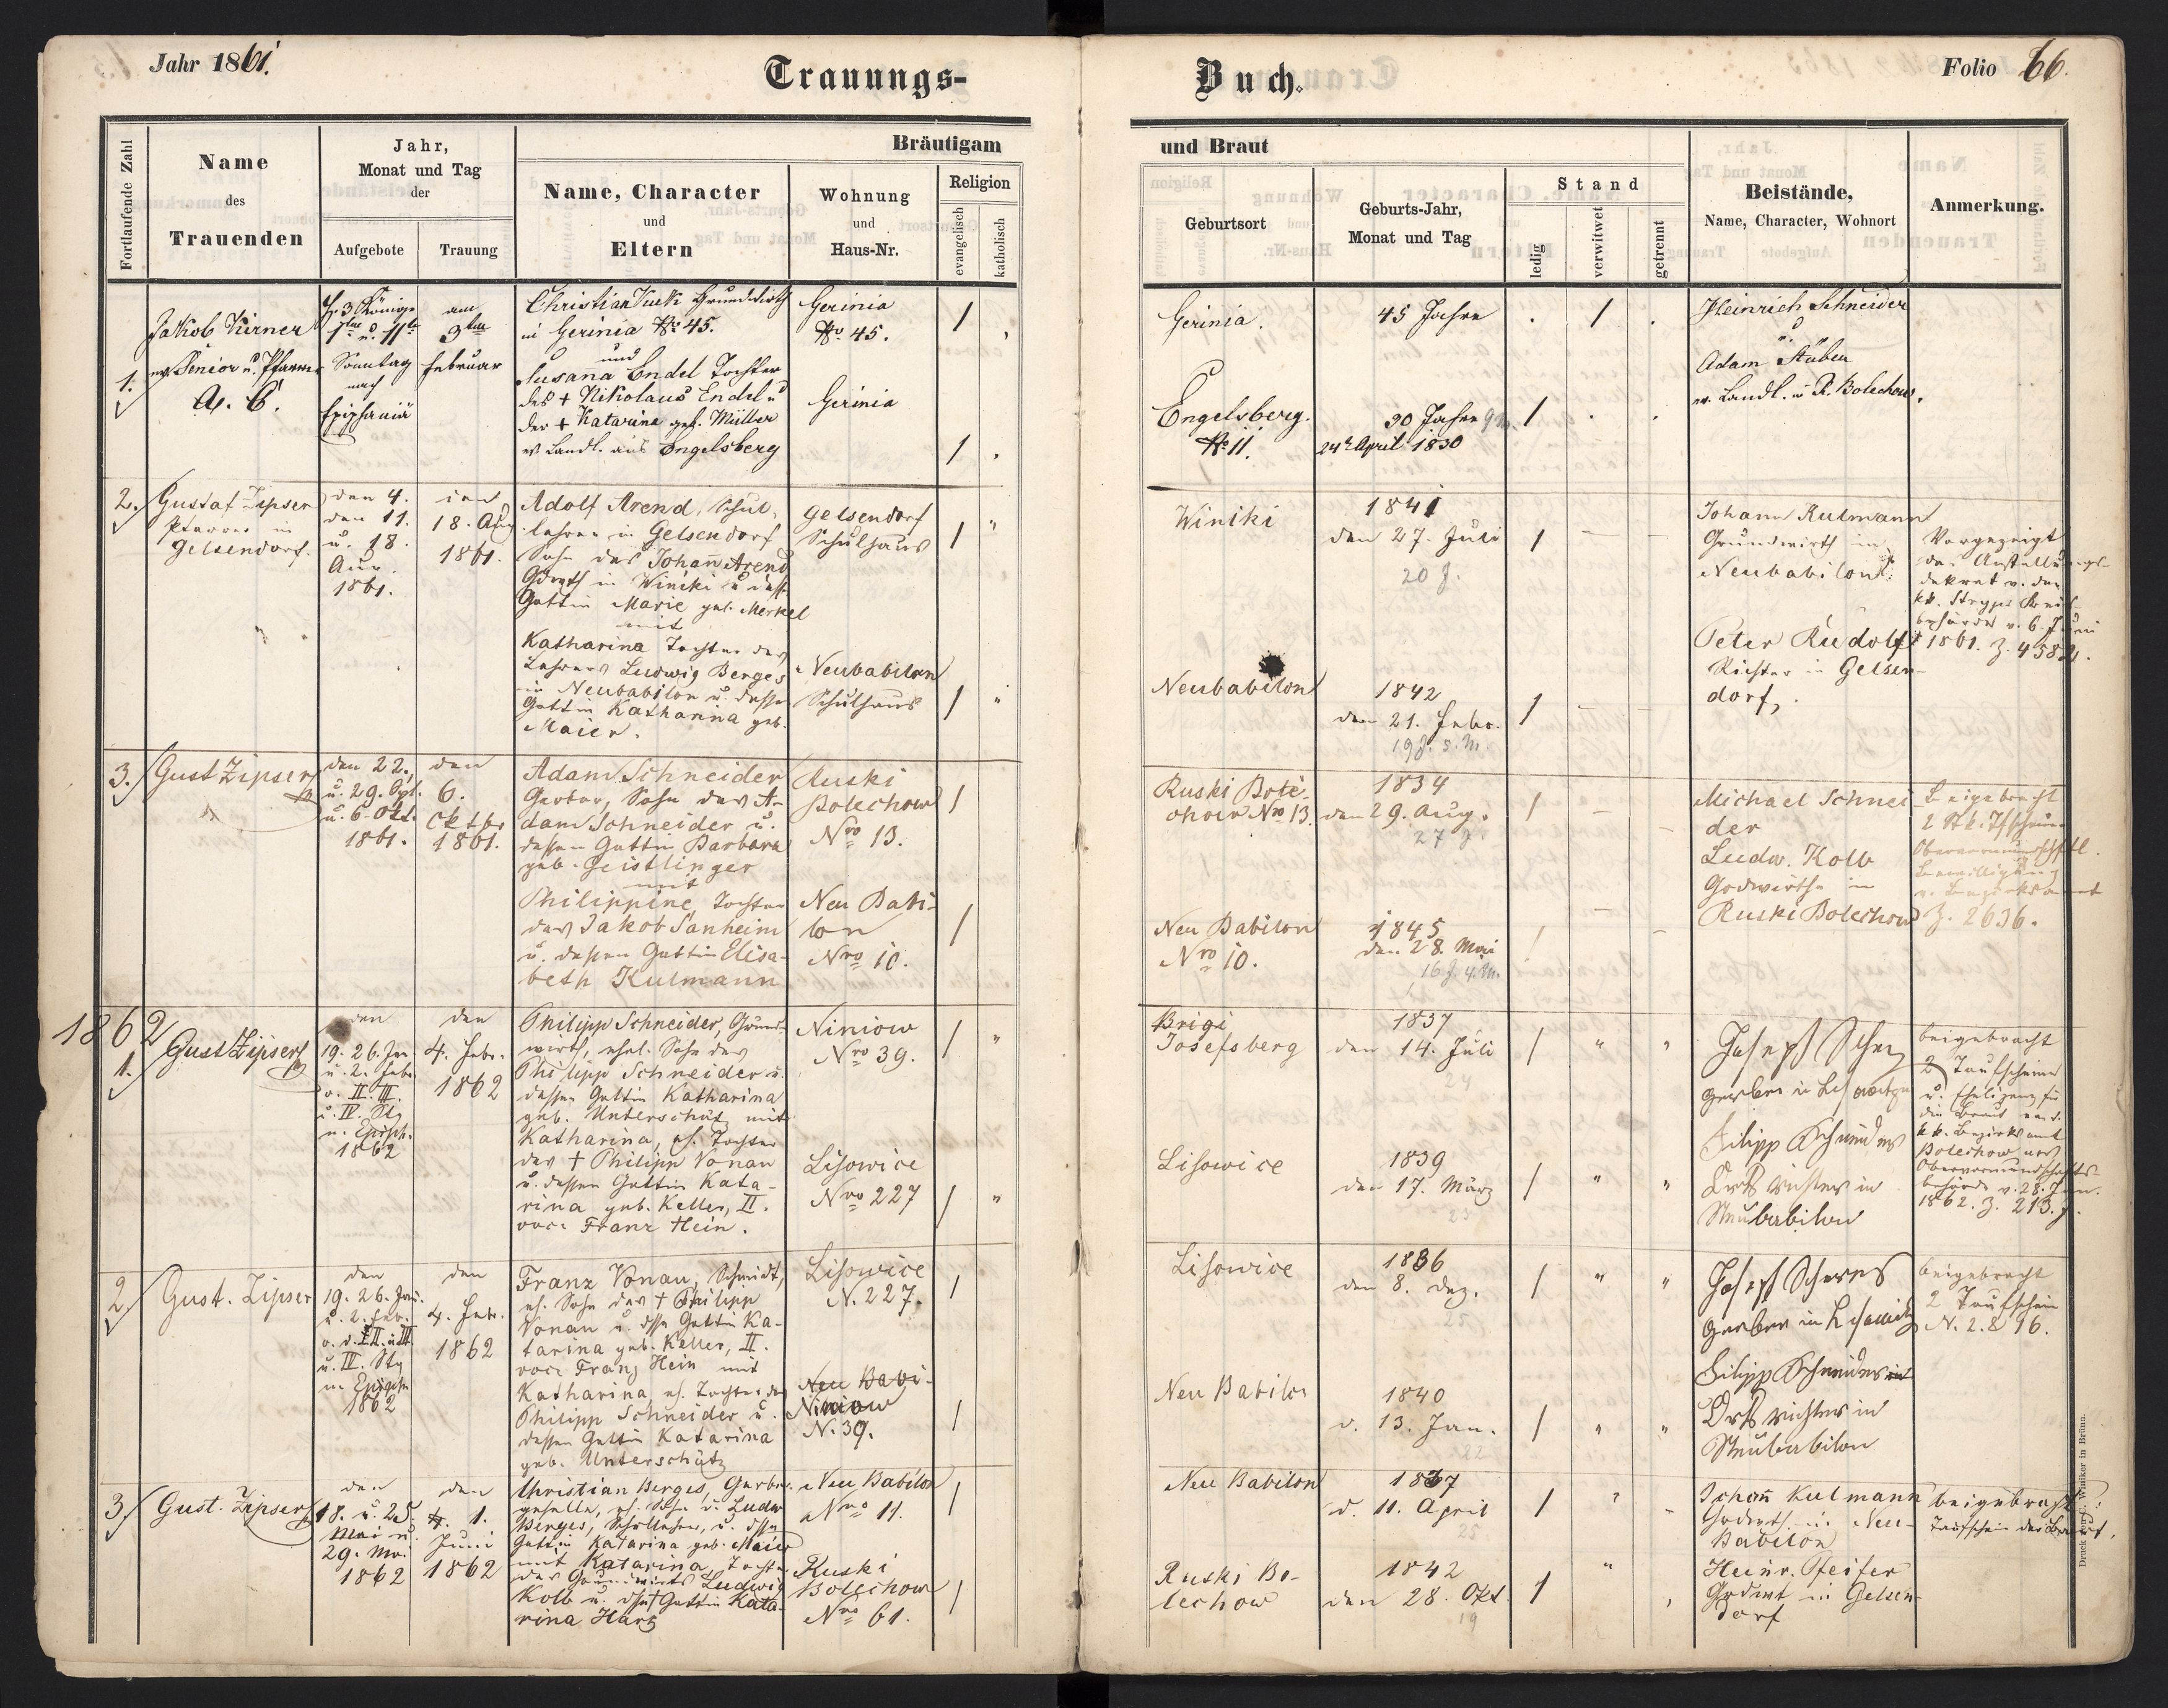 Jahr 1861.
Trauungs-
Buch.
Folio 66.
Fortlaufende Zahl
Name
des
Trauenden
Jahr,
Monat und Tag
der
Aufgebote
Trauung
Bräutigam
Name, Character
und
Eltern
Wohnung
und
Haus-Nr.
Religion
evangelisch
katholisch
und Braut
Geburtsort
Geburts-Jahr,
Monat und Tag
Stand
ledig
verwitwet
getrennt
Beistände,
Name, Character, Wohnort
Anmerkung.
1.
Jakob Kirner
ev. Senior u. Pfarrer
A. C.
3 Könige
1te u. 11te
Sonntag
nach
Epiphaniä
am
9ten
Februar
Christian Kuck Grundwirth
in Gerinia No 45.
und
Susana Endel Tochter
des + Nikolaus Endel u
der + Katarina geb. Müller
ev. Landl. aus Engelsberg
Gerinia
No 45.
Gerinia
Gerinia.
45 Jahre
Engelsberg.
No 11.
30 Jahre
24t April 1830
Heinrich Schneider
u
Adam Stüben
ev. Landl. in R. Bolechow.
2.
Gustaf Zipser
Pfarrer in
Gelsendorf.
den 4.
den 11.
u. 18.
Aug.
1861.
18. Aug
1861.
Adolf Arend, Schul-
lehrer in Gelsendorf
Sohn des Johan̄ Arend
Gdwth in Winiki u dess.
Gattin Marie geb. Merkel
mit
Katharina Tochter des
Lehrers Ludwig Berges
in Neubabilon u. dessen
Gattin Katharina geb.
Maier.
Gelsendorf
Schulhaus
Neubabilon
Schulhaus
Winiki
1841
den 27. Juli
20 J.
Neubabilon
1842
den 21. Febr.
19 J. 5. M.
Johann Kulmann
Grundwirth in
Neubabilon
Peter Rudolf
Richter in Gelsen-
dorf,
Vorgezeigt
das Anstellungs-
dekret v. der
kk. Stryjer Kreis-
behörde v. 6. Juni
1861. Z. 4582.
3.
Gust Zipser
den 22.
u. 29. Spt.
u. 6. Okt.
1861.
den
6.
Oktbr
1861.
Adam Schneider
Gerber, Sohn des A-
dam Schneider u.
dessen Gattin Barbara
geb. Geistlinger
mit
Philippine Tochter
des Jakob Sanheim
u. dessen Gattin Elisa-
beth Kulmann
Ruski
Bolechow
Nro 13.
Neu Babi-
lon
Nro 10.
Ruski Bole-
chow Nro 13.
1834
den 29. Aug.
27 J.
Neu Babilon
Nro 10.
1845
den 28. Mai
16 J. 4. M.
Michael Schnei
der
Ludw. Kolb
Grdwirthe in
Ruski Bolechow
Beigebracht
2 Stk. Tfscheine
Obervormundschftl.
Bewilligung
v. Bezirksamt
Z. 2636.
1862
1.
Gust Zipser
den
19. 26. Jan.
u. 2. Febr.
o. II. III.
u. IV. Stg
n. Epiph.
1862
den
4. Febr.
1862
Philipp Schneider, Grund-
wirth, ehel. Sohn des
Philipp Schneider u.
dessen Gattin Katharina
geb. Unterschütz mit
Katharina, eh. Tochter
des + Philipp Vonau
u. dessen Gattin Kata-
rina geb. Keller, II.
voce Franz Hein.
Niniow
Nro 39.
Lisowice
Nro 227
Brigi
Josefsberg
1837
den 14. Juli
24
Lisowice
1839
den 17. März
23
Joseph
Filipp Schneider
Ortsrichter in
Neubabilon
beigebracht
2 Taufscheine
die Braut
kk. Bezirksamt
Bolechow als
Obervormundschafts-
behörde v. 28. Jan.
1862. Z. 213.
2.
Gust. Zipser
den
19. 26. Jan.
u. 2. Febr.
o. d. II. u III
u. IV. Stg
n. Epiph
1862
den
4. Febr.
1862
Franz Vonau, Schmidt,
eh. Sohn des + Philipp
Vonau u. dssn Gattin Ka-
tarina geb. Keller, II.
voce Franz Hein mit
Katharina eh. Tochter des
Philipp Schneider u.
dessen Gattin Katarina
geb. Unterschütz
Lisowice
N. 227.
Neu Babi-
Niniow
N. 39.
Lisowice
1836
den 8. Dez.
25
Neu Babilon
1840
d. 13. Jan.
22
Joseph
Gerber in
Filipp Schneider
Ortsrichter in
Neubabilon
beigebracht
2 Taufschein
N. 2. & 96.
3.
Gust. Zipser
den
18. u. 25.
Mai u.
29. Mai
1862
den
1.
Juni
1862
Christian Berges, Gerber-
geselle, eh. Sohn d. Ludw
Berges, Schullehrer, u. dssn
Gattin Katarina geb. Maier
mit Katarina, Tochter
des Grundwirts Ludwig
Kolb u. dssn Gattin Kata-
rina Hartz
Neu Babilon
Nro 11.
Ruski
Bolechow
Nro 61.
Neu Babilon
1837
d. 11. April
25
Ruski Bo-
lechow
1842
den 28. Okt.
19
Johan̄ Kulmann
Grdwth. in Neu-
Babilon
Heinr. Pfeifer
Grdwt in Gelsen-
dorf
beigebracht:
Taufschein der Braut.
Druck v. Winiker in Brünn.